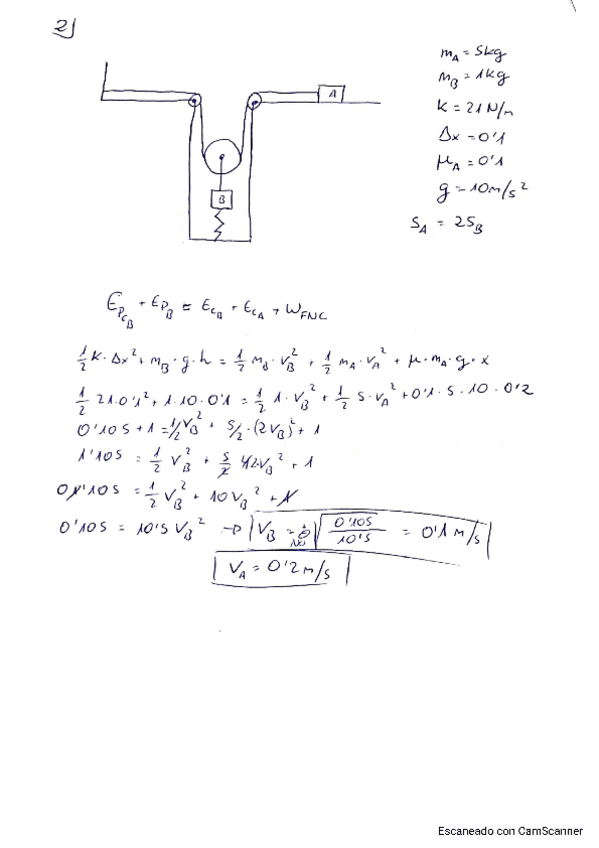 2)
m_A = 5kg
m_B = 1kg
K = 21 N/m
Δx = 0'1
μ_A = 0'1
g = 10m/s²
S_A = 2S_B
A
B
E_PCB + E_PB = E_CB + E_CA + W_FNC
1/2 K · Δx² + m_B · g · h = 1/2 m_B · v_B² + 1/2 m_A · v_A² + μ · m_A · g · x
1/2 21 · 0'1² + 1 · 10 · 0'1 = 1/2 1 · v_B² + 1/2 5 · v_A² + 0'1 · 5 · 10 · 0'2
0'105 + 1 = 1/2 v_B² + 5/2 · (2v_B)² + 1
1'105 = 1/2 v_B² + 5/2 4 v_B² + 1
0'105 = 1/2 v_B² + 10 v_B² + 1
0'105 = 10'5 v_B² → V_B = √0'105/10'5 = 0'1 m/s
V_A = 0'2 m/s
Escaneado con CamScanner